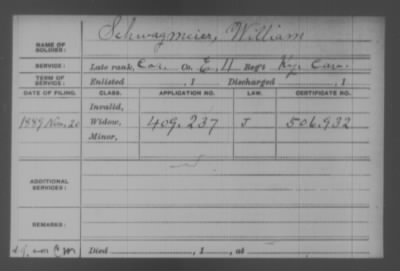 Schwagmeier, William
NAME OF
SOLDIER:
SERVICE: Late rank, Cor. Co. E, 11 Reg't Ky. Cav.
TERM OF
SERVICE: Enlisted , 1 Discharged , 1
DATE OF FILING. CLASS. APPLICATION NO. LAW. CERTIFICATE NO.
Invalid,
1889 Nov. 20 Widow, 409.237 J 506.932
Minor,
ADDITIONAL
SERVICES:
REMARKS:
Died , 1 , at